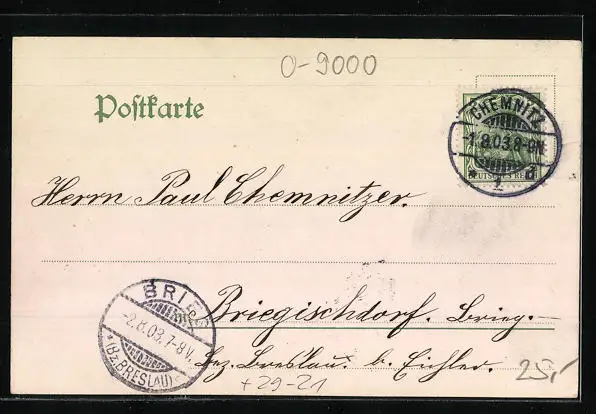 0-9000
Postkarte
CHEMNITZ
-1.8.03.8-9N.
* 1 d
DEUTSCHES REICH
Herrn Paul Chemnitzer.
BRIEG
-2.8.03.7-8V.
*(Bz.BRESLAU)
Briegischdorf. Brieg.-
Bez. Breslau. b. Eichler.
+29-21
25,-